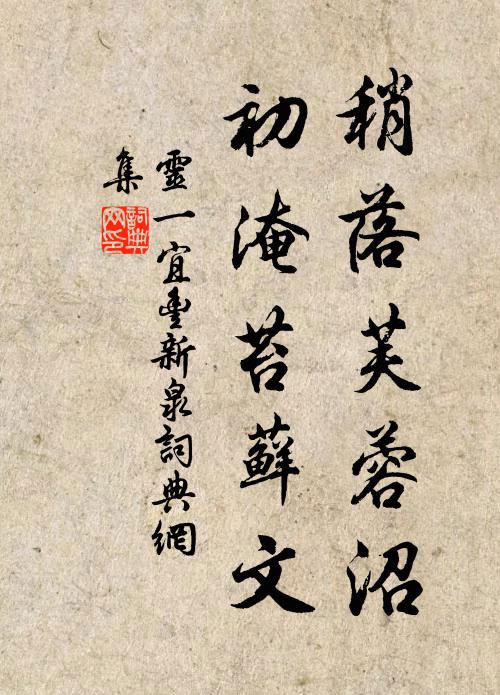 稍落芙蓉沼
初淹苔蘚文
靈一宜豐新泉詞典網
集
詞典網印